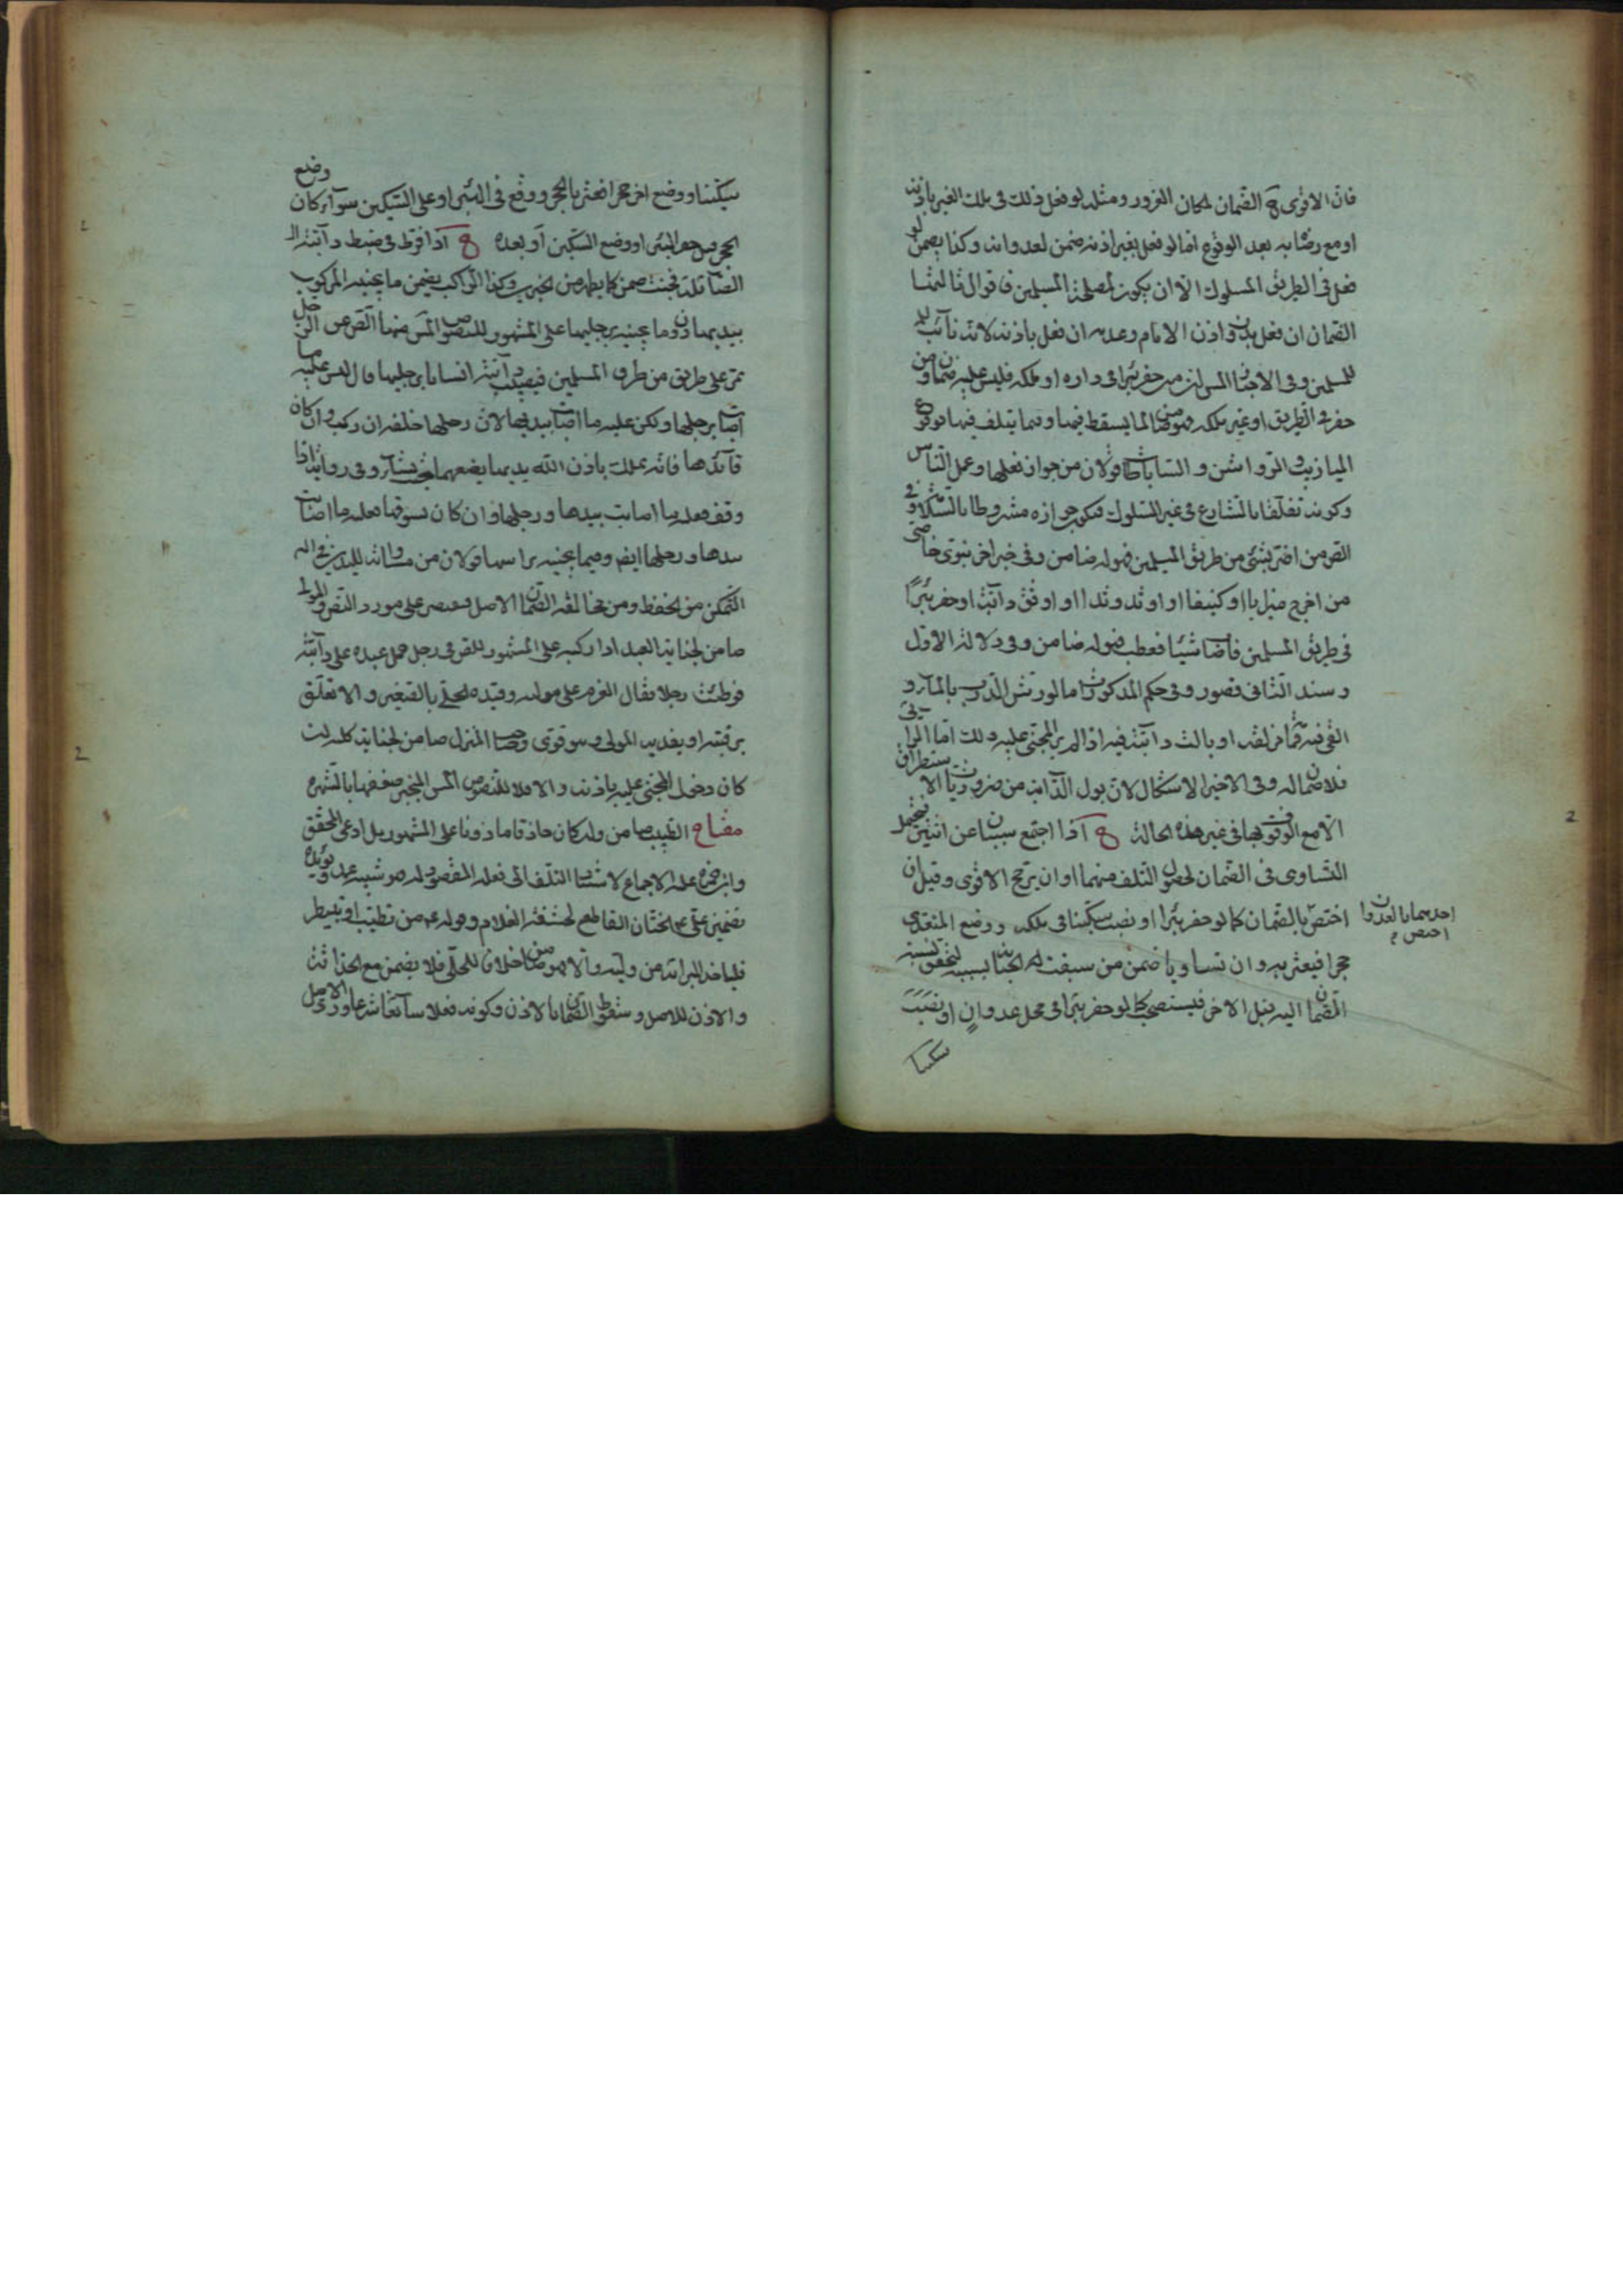 فان الاقوى ح الضمان لمكان الغرور ومثله لو فعل ذلك فى ملك الغير باذنه
او مع رضاه به بعد الوقوع اما لو فعل بغير اذنه ضمن لعدوانه وكذا يضمن لو
فعل فى الطريق المسلوك الا ان يكون لمصلحة المسلمين فاقوال ثالثها
الضمان ان فعل بدون اذن الامام وعدمه ان فعل باذنه لانه نائب
للمسلمين وفى الاخبار من حفر بئرا فى داره او ملكه فليس عليه ضمان ومن
حفر فى الطريق او غير ملكه فهو ضامن لما يسقط فيها وفيما يتلف فيها بوقوع
الميازيب والرواشن والساباطات قولان من جواز فعلها وعمل الناس
وكونه تعلقا بالشارع فى غير السلوك فيكون جوازه مشروطا بالسلامة وفى
النص من اضر بشئ من طريق المسلمين فهو له ضامن وفى خبر اخر نبوى خاصى
من اخرج ميزابا او كنيفا او اوتد وتدا او اوثق دابة او حفر بئرًا
فى طريق المسلمين فاصاب شيئا فعطب فهو له ضامن وفى دلالة الاول
وسند الثانى قصور وفى حكم المذكورات ما لو رش الدرب بالماء او
القى فيه قمامة مزلقة او بالت دابته فيه اذا لم ير المجنى عليه ذلك اما الرائى
فلا ضمان له وفى الاخير اشكال لان بول الدابة من ضروريات الاستطراق
الا مع الوقوف بها فى غير هذه الحالة ح اذا اجتمع سببان عن اثنين فيحتمل
التساوى فى الضمان لحصول التلف منهما او ان يرجح الاقوى وقيل ان
اختص احدهما بالعدوان اختص بالضمان كما لو حفر بئرا او نصب سكينا فى ملكه ووضع المتعدى
حجرا فيعثر به وان تساويا ضمن من سبقت اليه الجناية بسببه لتحقق نسبة
الضمان اليه قبل الاخر فيستصحب كما لو حفر بئرا فى محل عدوانٍ او نصب
سكينا
سكينا ووضع اخر حجرا فعثر بالحجر ووقع فى البئر او على السكين سواء كان وضع
الحجر قبل حفر البئر او وضع السكين او بعده ح اذا فرط فى ضبط دابته
الصائلة فجنت ضمن كما يظهر من الخبر وكذا الراكب يضمن ما يجنيه المركوب
بيديها دون ما يجنيه برجليها على المشهور للنصوص منها النص عن الرجل
يمر على طريق من طرق المسلمين فيصيب دابته انسانا برجليها قال ليس عليه ما
اصابت برجلها ولكن عليه ما اصابت بيديها لان رجلها خلفه ان ركب وان كان
قائدها فانه يملك باذن الله يديها يضعهما حيث يشاء وفى رواية اذا
وقف فعليه ما اصابت بيدها ورجلها وان كان يسوقها فعليه ما اصابت
بيدها ورجلها ايضا وفيما يجنيه براسها قولان من مساواته لليدين فى
التمكن من الحفظ ومن مخالفة الضمان الاصل فيقتصر على مورد النص والمولى
ضامن لجناية العبد اذا ركبه على المشهور للنص فى رجل حمل عبده على دابته
فوطئت رجلا فقال الغرم على مولاه وقيده الحلى بالصغير والا تعلق
برقبته او يفديه المولى وهو قوى وصاحب المنزل ضامن لجناية كلبه ان
كان دخل المجنى عليه باذنه والا فلا للنصوص المنجبر ضعفها بالشهرة
مفتاح الطبيب ضامن ولو كان حاذقا ماذونا على المشهور بل ادعى المحقق
وابن زهرة عليه الاجماع لاستناد التلف الى فعله المقصود له فهو شبيه عمد ويؤيده
تضمين على ع الختان القاطع لحشفة الغلام وقوله ع من تطبب او تبيطر
فلياخذ البرائة من وليه والا فهو ضامن خلافا للحلى فلا يضمن مع الحذاقة
والاذن للاصل وسقوط الضمان بالاذن وكونه فعلا سائغا شرعا ورد الاصل